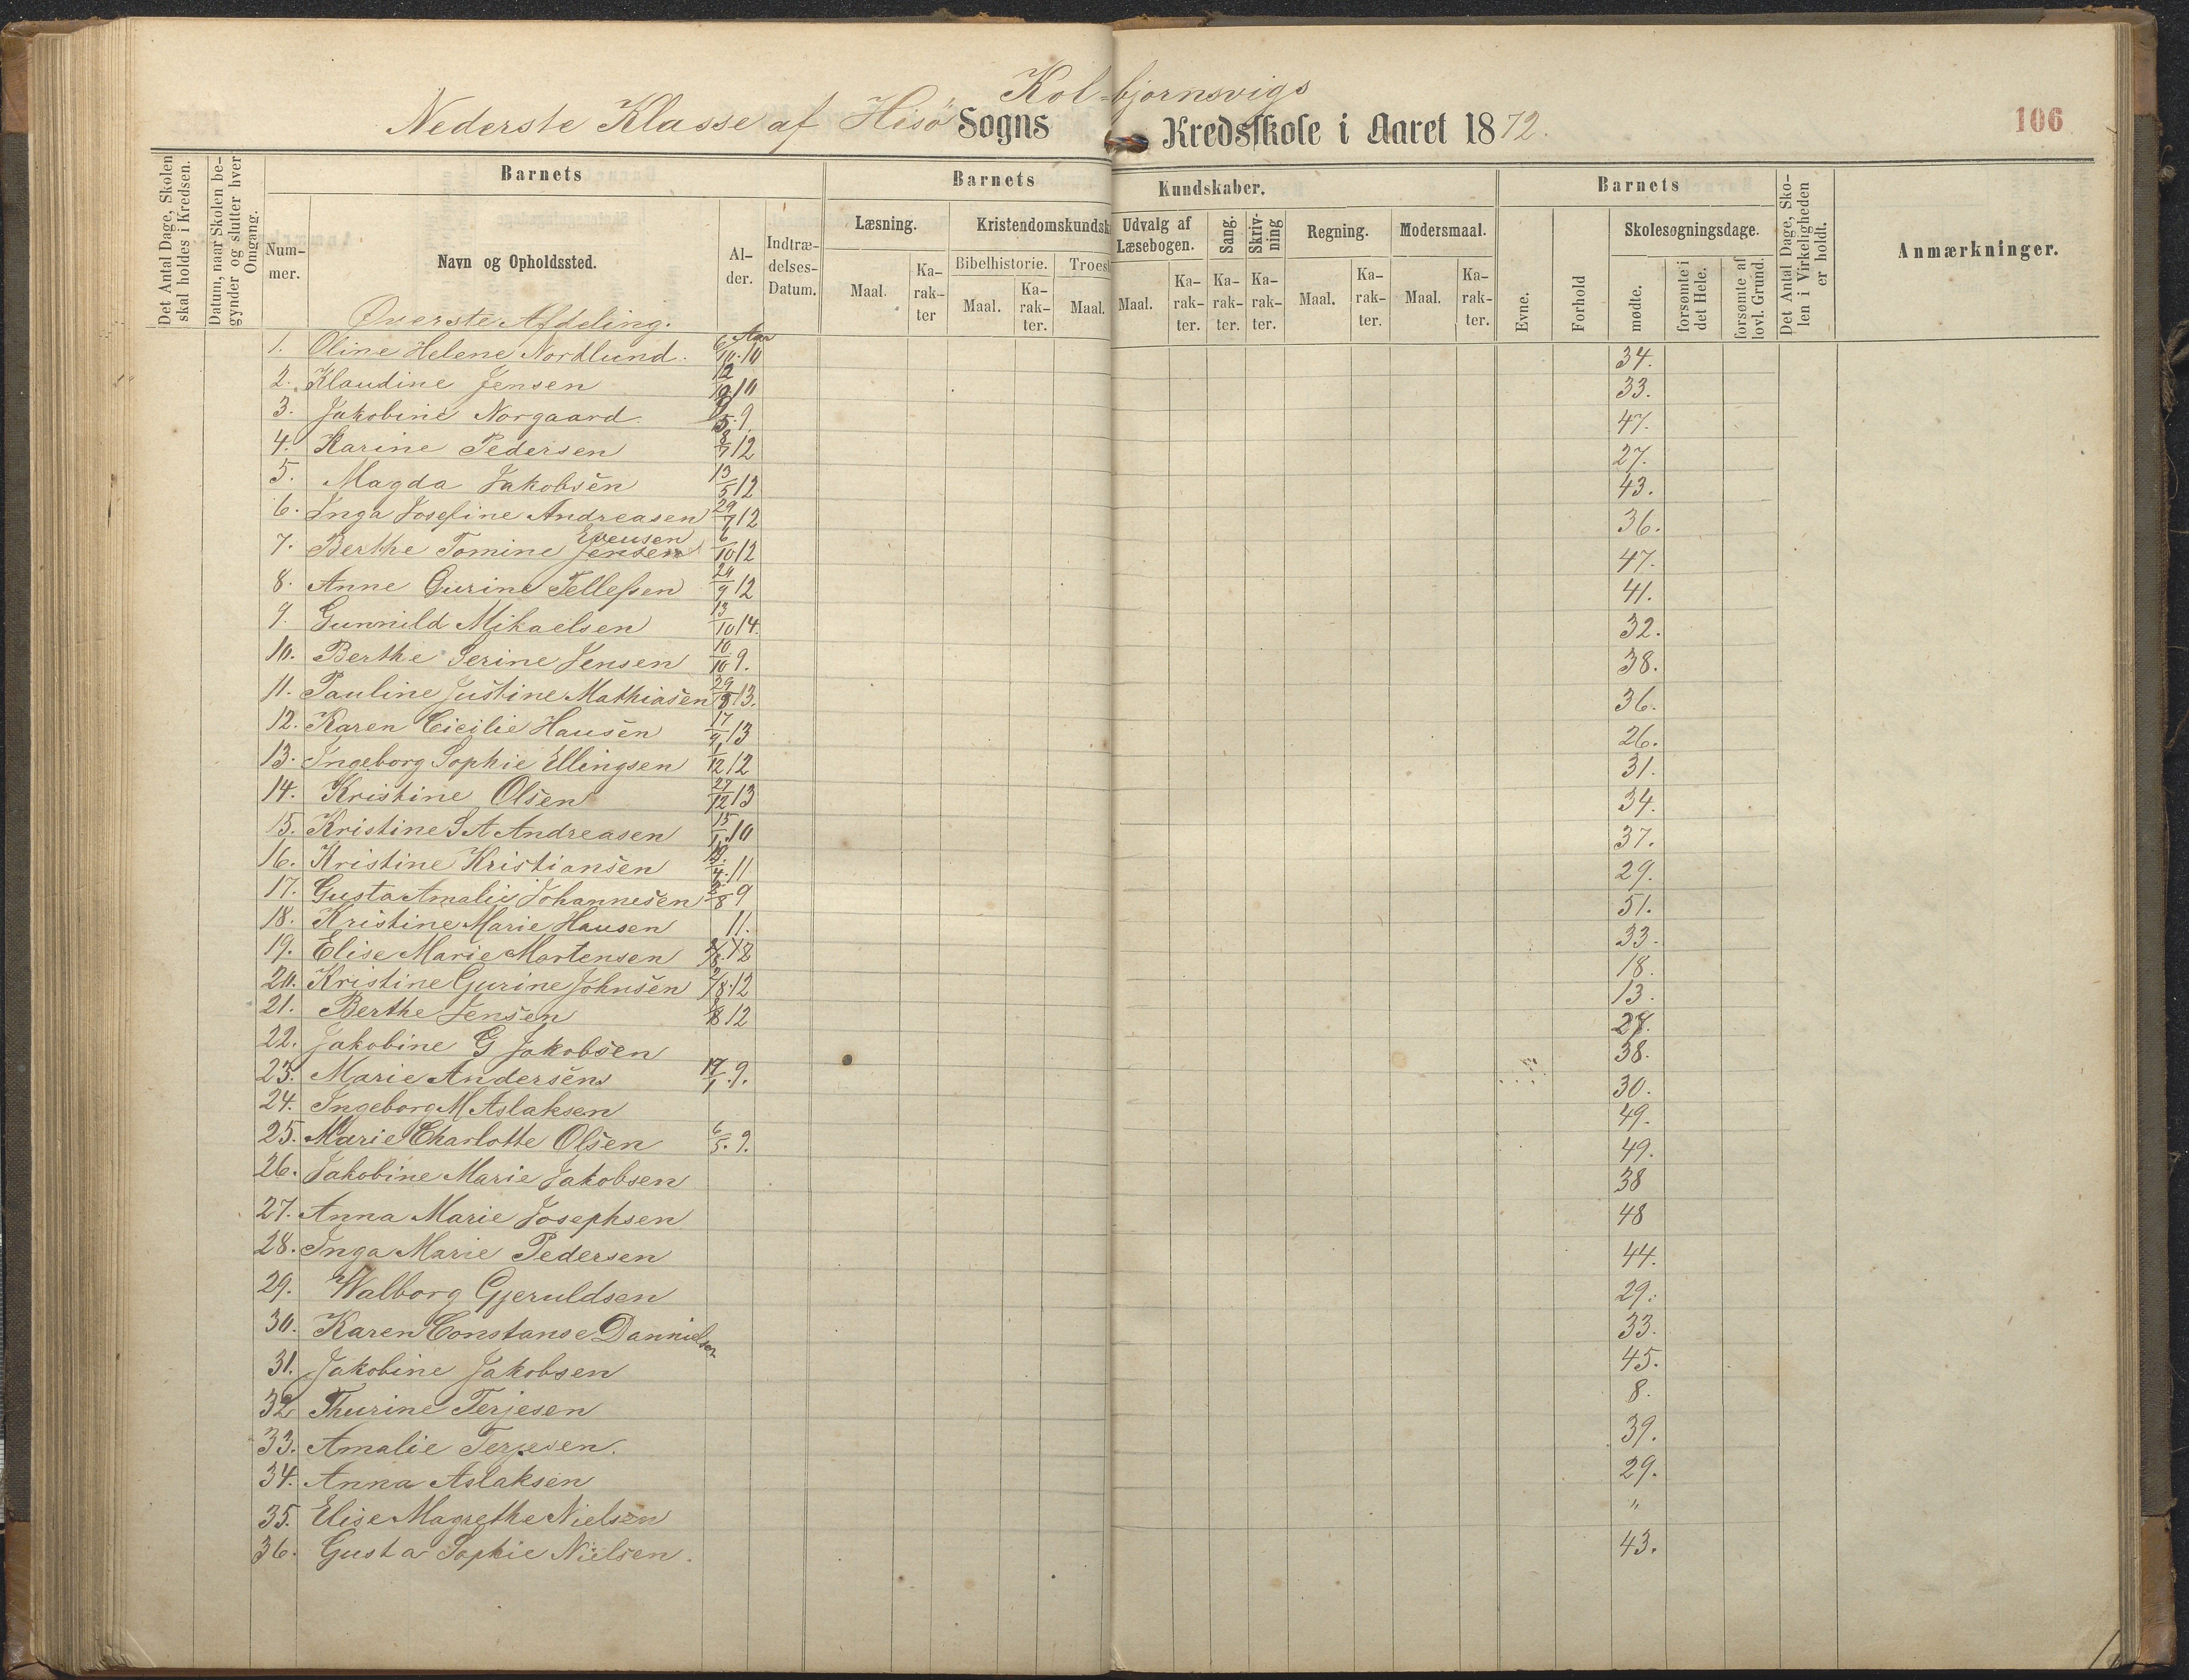 Kolbjørnsvigs
Nederste Klasse af Hisø Sogns Kredsskole i Aaret 1872.
106
Det Antal Dage, Skolen skal holdes i Kredsen.
Datum, naar Skolen begynder og slutter hver Omgang.
Barnets
Barnets Kundskaber.
Barnets
Det Antal Dage, Skolen i Virkeligheden er holdt.
Anmærkninger.
Nummer.
Navn og Opholdssted.
Alder.
Indtrædelses-Datum.
Læsning.
Kristendomskundsk
Udvalg af Læsebogen.
Sang.
Skrivning
Regning.
Modersmaal.
Evne.
Forhold
Skolesøgningsdage.
Bibelhistorie.
Troesl
Maal.
Karakter
Maal.
Karakter.
Maal.
Maal.
Karakter.
Karakter.
Karakter.
Maal.
Karakter.
Maal.
Karakter.
mødte.
forsømte i det Hele.
forsømte af lovl. Grund.
Øverste Afdeling.
Aar
1. Oline Helene Nordlund. 6/10 10 34.
2. Klaudine Jensen 10 33.
3. Jakobine Norgaard. 9. 47.
4. Karine Pedersen 8/7 12 27.
5. Magda Jakobsen 13/5 12 43.
6. Inga Josefine Andreasen 29/7 12 36.
Evensen
7. Berthe Tomine Jensen 6/10 12 47.
8. Anne Gurine Tellefsen 20/9 12 41.
9. Gunnild Mikaelsen 13/10 14. 32.
10. Berthe Serine Jensen 10/10 9. 38.
11. Pauline Justine Mathiasen 29/8 13. 36.
12. Karen Cicilie Hansen 17/9 13 26.
13. Ingeborg Sophie Ellingsen 1/12 12 31.
14. Kristine Olsen 27/12 13 34.
15. Kristine S A Andreasen 15/1 10 37.
16. Kristine Kristiansen 11 29.
17. Gusta Amalie Johannesen 2/8 9 51.
18. Kristine Marie Hansen 11. 33.
19. Elise Marie Mortensen 12 18.
20. Kristine Gurine Johnsen 2/8 12 13.
21. Berthe Jensen 8/8 12 28.
22. Jakobine G Jakobsen 38.
23. Marie Andersen 17/1 9. 30.
24. Ingeborg M Aslaksen 49.
25. Marie Charlotte Olsen 6/5. 9. 49.
26. Jakobine Marie Jakobsen 38
27. Anna Marie Josephsen 48
28. Inga Marie Pedersen 44.
29. Walborg Gjeruldsen 29.
30. Karen Constanse Dannielsen 33.
31. Jakobine Jakobsen 45.
32 Thurine Terjesen 8.
33. Amalie Terjesen. 39.
34. Anna Aslaksen 29.
35. Elise Magrethe Nielsen "
36. Gusta Sophie Nielsen. 43.